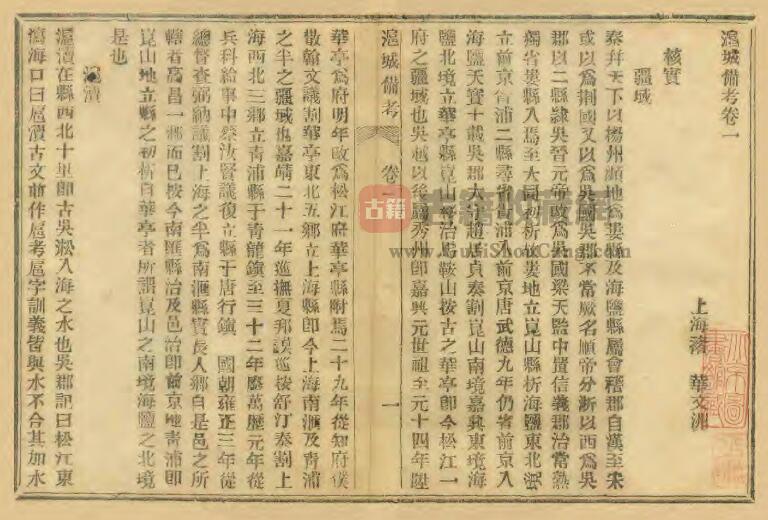 滬城備考卷一
上海褚 華文洲
核實
疆域
秦并天下以揚州瀕地爲婁縣及海鹽縣屬會稽郡自漢至宋
或以爲荆國又以爲吳國吳郡不常厥名順帝分浙以西爲吳
郡以二縣隸吳晉元帝改爲吳國梁天監中置信義郡治常熟
獨省婁縣入焉至大同初析故婁地立崑山縣析海鹽東北
立前京 浦二縣尋省 浦入前京唐武德九年仍省前京入
海鹽天寶十載吳郡太 趙居貞奏割崑山南境嘉興東境海
鹽北境立華亭縣崑山 治馬鞍山按古之華亭即今松江一
府之疆域也吳越以後 秀州即嘉興元世祖至元十四年陞
滬城備考 卷一 一
華亭爲府明年改爲松江府華亭縣附焉二十九年從知府僕
散翰文議割華亭東北五鄉立上海縣即今上海南滙及青浦
之半之疆域也嘉靖二十一年巡撫夏邦謨巡按舒汀奏割上
海西北三鄉立青浦縣于青龍鎮至三十二年廢萬歷元年從
兵科給事中蔡汝賢議復立縣于唐行鎮 國朝雍正三年從
總督查弼納議割上海之半爲南滙縣實長人鄉自是邑之所
轄者高昌一鄉而已按今南匯縣治及邑治即前京地青浦即
崑山地立縣之初析自華亭者所謂崑山之南境海鹽之北境
是也
滬瀆
滬瀆在縣西北十里即古吳淞入海之水也吳郡記曰松江東
瀉海口曰扈瀆古文前作扈考扈字訓義皆與水不合其加水
古籍
www.JuJiShouCang.com